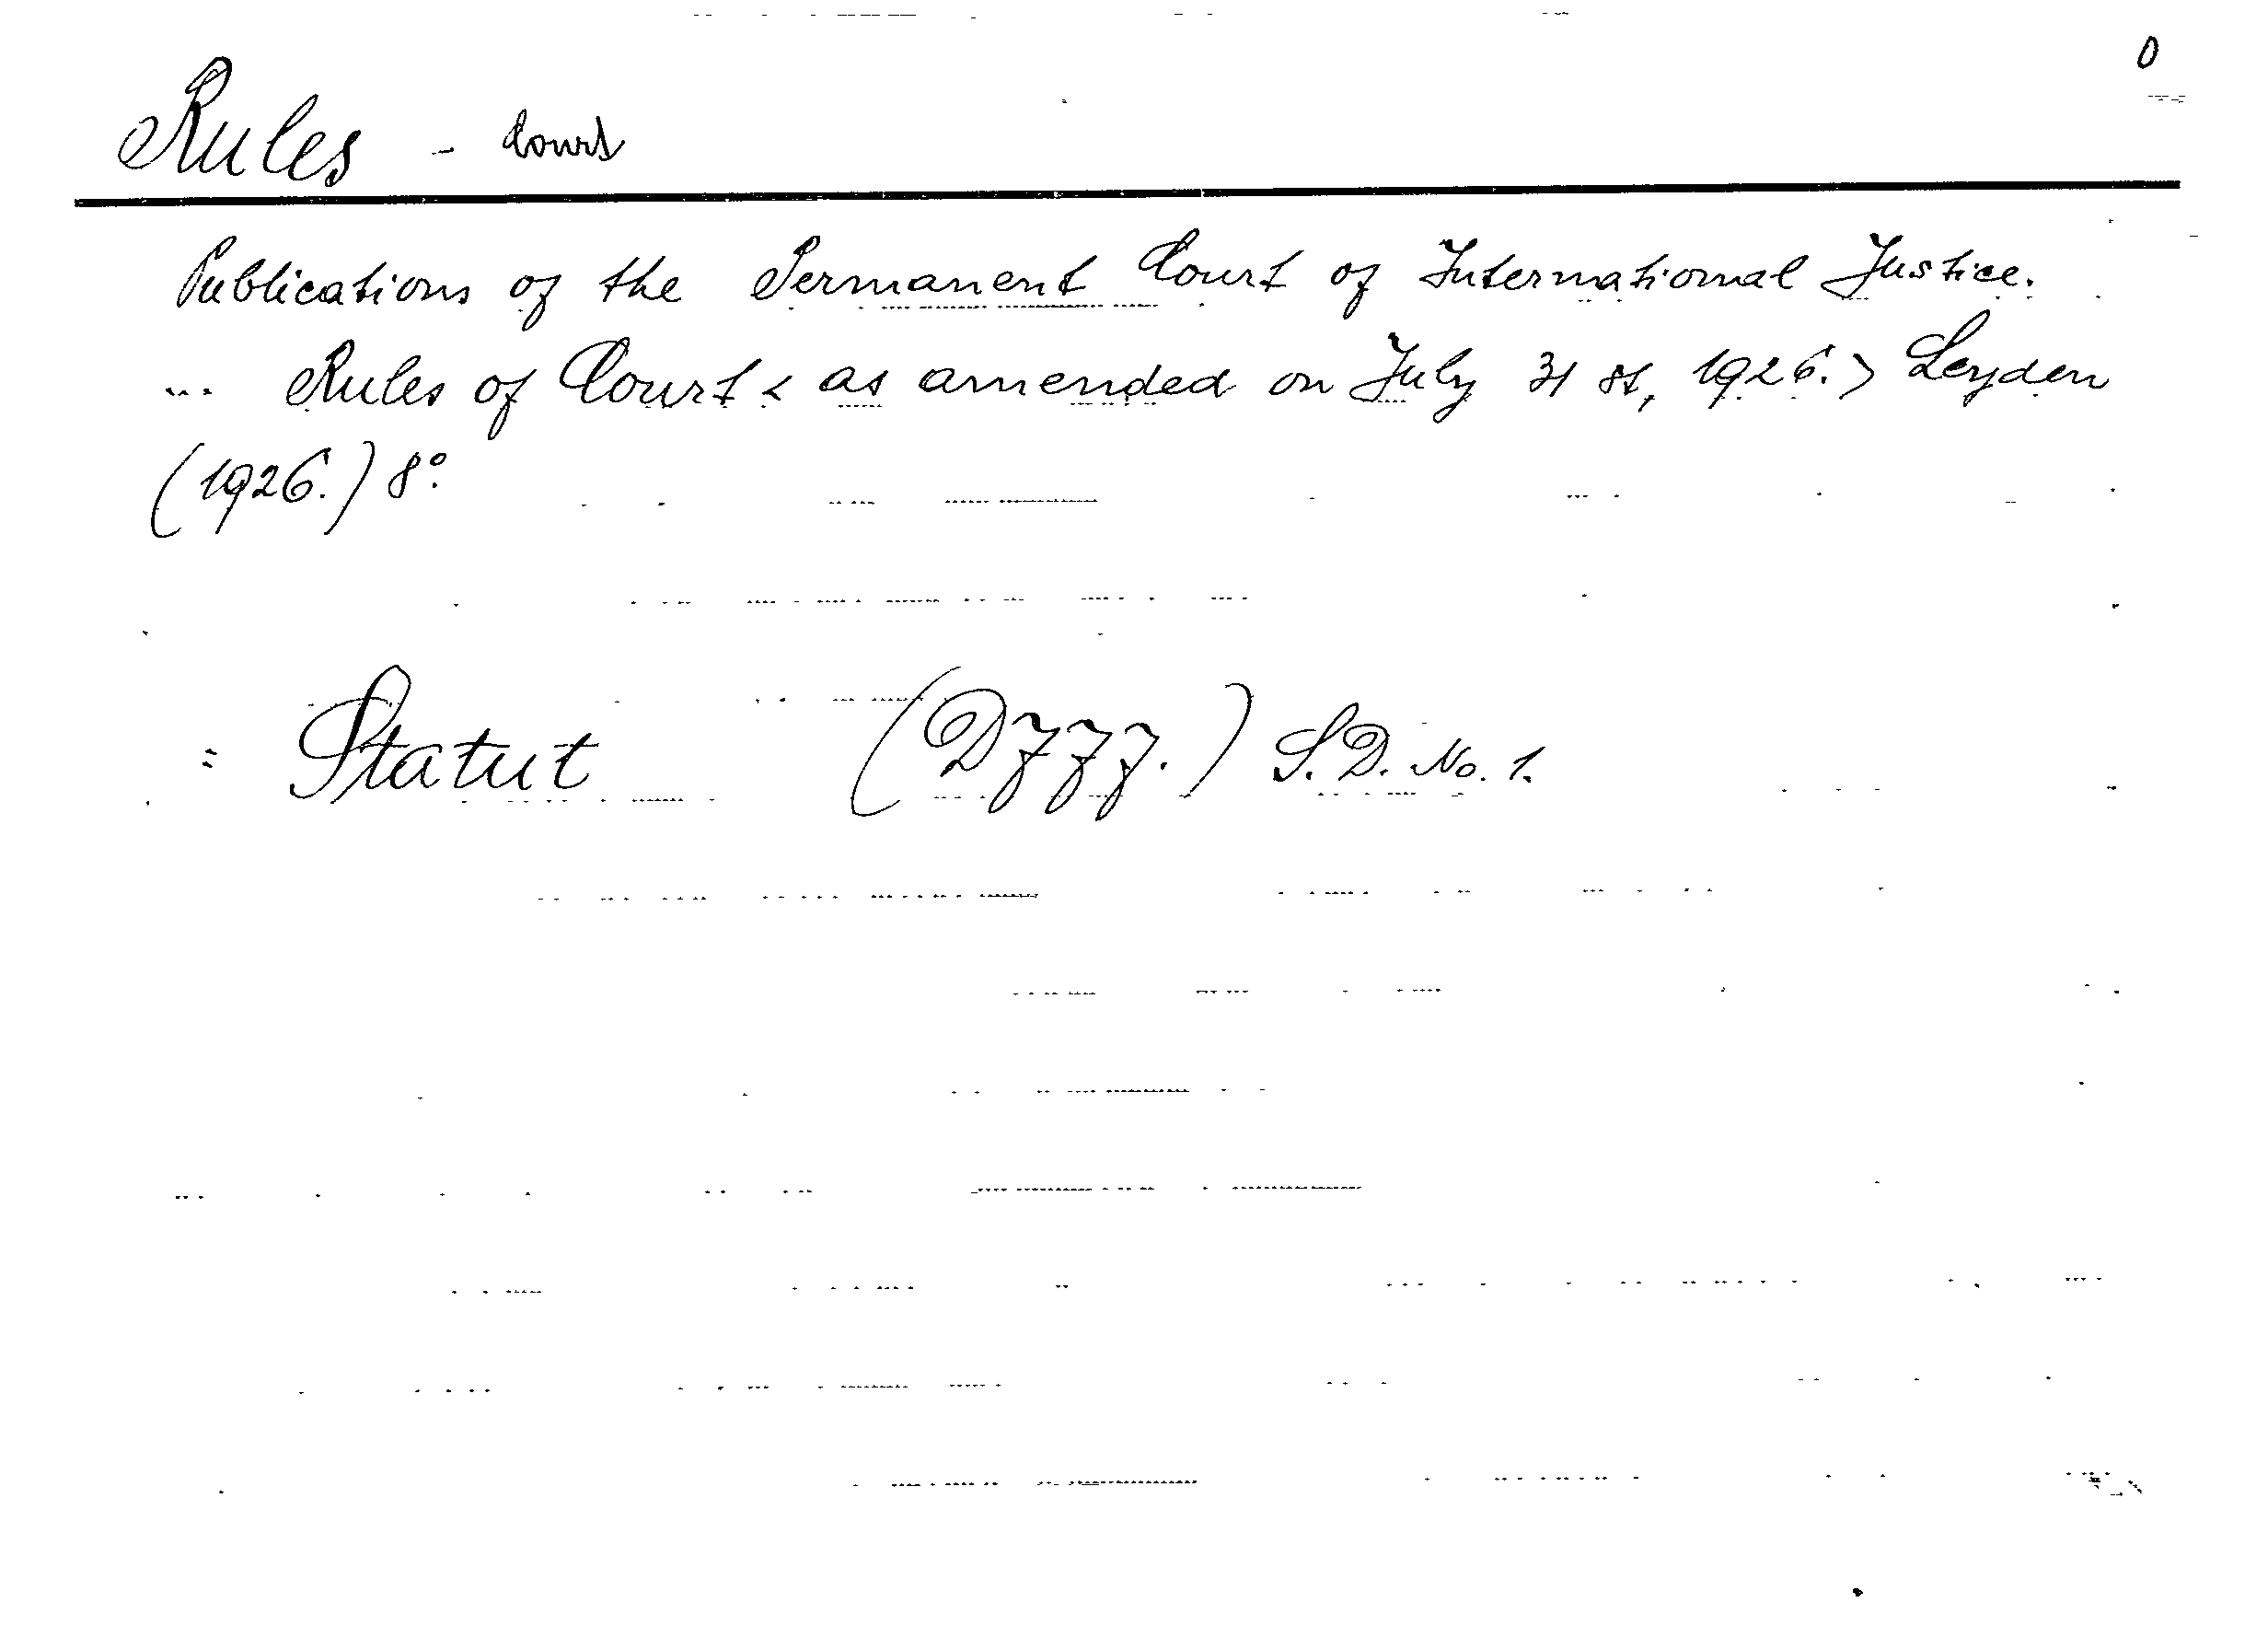 0
Rules - Court
Publications of the Permanent Court of International Justice.
... Rules of Court < as amended on July 31 st, 1926. > Leyden
(1926.) 8°.
= Statut (DJJJ.) S.D. No. 1.